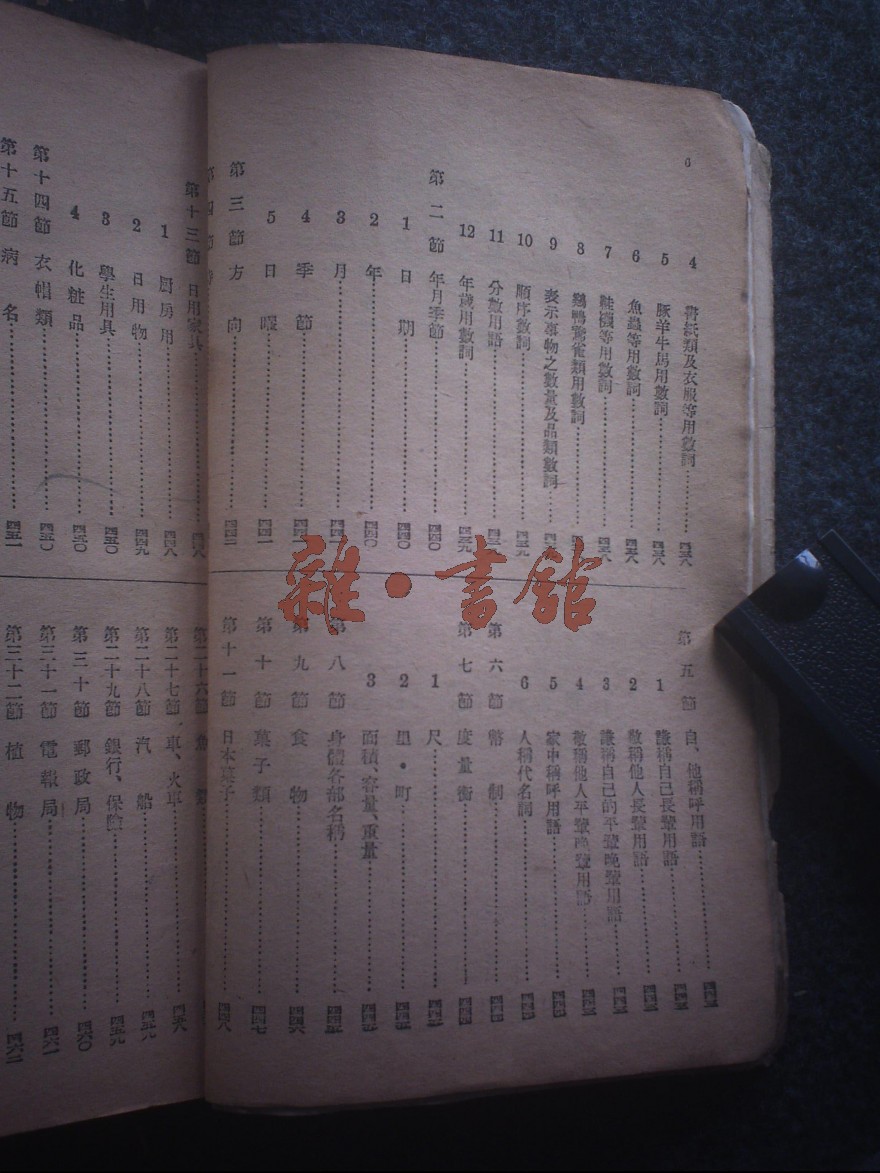 6
4 書紙類及衣服等用數詞………四三八
5 豚羊牛馬用數詞………四三八
6 魚蟲等用數詞………四三八
7 鞋襪等用數詞………四三八
8 鷄鴨鴛雀類用數詞………
9 表示事物之數量及品類數詞………
10 順序數詞………四三九
11 分數用語………四三九
12 年歲用數詞………四三九
第二節 年月季節………四四〇
1 日期………四四〇
2 年………四四〇
3 月………
4 季節………
5 日曜………四四一
第三節 方向………四四二
第四節
第五節 自、他稱呼用語………
1 謙稱自己長輩用語………
2 敬稱他人長輩用語………
3 謙稱自己的平輩晚輩用語………
4 敬稱他人平輩晚輩用語………
5 家中稱呼用語………
6 人稱代名詞………
第六節 幣制………
第七節 度量衡………
1 尺………
2 里・町………
3 面積、容量、重量………
第八節 身體各部名稱………
第九節 食物………四四六
第十節 菓子類………四四七
第十一節 日本菓子………四四八
第十三節 日用家具………四四八
1 厨房用………四四八
2 日用物………四四九
3 學生用具………四五〇
4 化粧品………四五〇
第十四節 衣帽類………四五〇
第十五節 病名………四五一
第二十六節 魚類
第二十七節 車、火車………四五八
第二十八節 汽船………四五九
第二十九節 銀行、保險………四五九
第三十節 郵政局………四六〇
第三十一節 電報局………四六一
第三十二節 植物………四六二
雜·書館